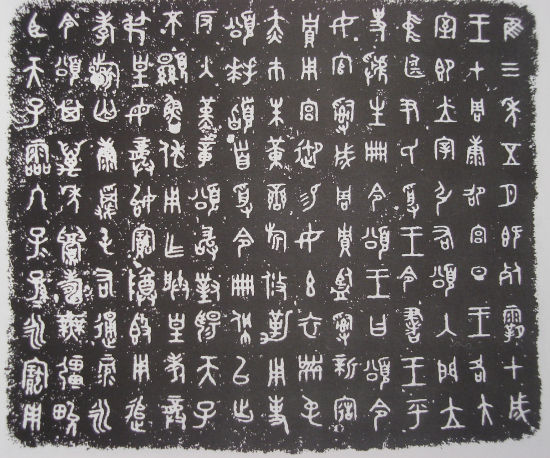 隹三年五月既死霸甲戌
王才周康卲宮旦王各大
室即立宰弘右頌入門立
中廷尹氏受王令書王乎
史虢生冊令頌王曰頌令
女官𤔲成周貯監𤔲新寤
貯用宮御易女玄衣黹屯
赤巿朱黃䜌旂攸勒用事
頌拜𩒨首受令冊佩以出
反入堇章頌敢對揚天子
不顯魯休用乍朕皇考龏
弔皇母龏始寶尊𣪘用追
孝𣄨匄康屯右通彔永
令頌其萬年眉壽無彊畯
臣天子霝冬子孫永寶用